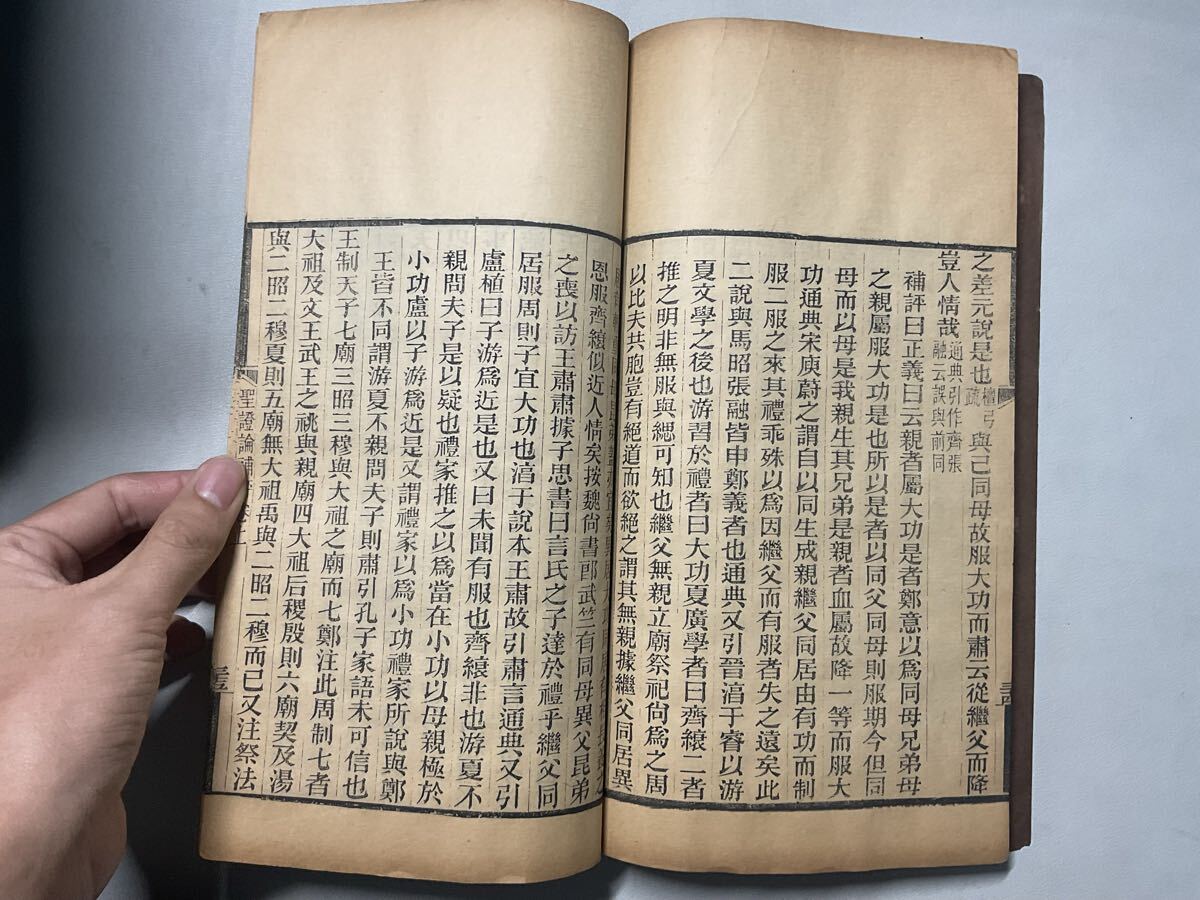 之差元說是也檀弓疏與己同母故服大功而肅云從繼父而降
豈人情哉通典引作齊張融云誤與前同
補評曰正義曰云親者屬大功是者鄭意以爲同母兄弟母
之親屬服大功是也所以是者以同父同母則服期今但同
母而以母是我親生其兄弟是親者血屬故降一等而服大
功通典宋庾蔚之謂自以同生成親繼父同居由有功而制
服二服之來其禮乖殊以爲因繼父而有服者失之遠矣此
二說與馬昭張融皆申鄭義者也通典又引晉淳于睿以游
夏文學之後也游習於禮者曰大功夏廣學者曰齊縗二者
推之明非無服與緦可知也繼父無親立廟祭祀尙爲之周
以比夫共胞豈有絕道而欲絕之謂其無親據繼父同居異
恩服齊縗似近人情矣按魏尙書郎武竺有同母異父昆弟
之喪以訪王肅肅據子思書曰言氏之子達於禮乎繼父同
居服周則子宜大功也淳于說本王肅故引肅言通典又引
盧植曰子游爲近是也又曰未聞有服也齊縗非也游夏不
親問夫子是以疑也禮家推之以爲當在小功以母親極於
小功盧以子游爲近是又謂禮家以爲小功禮家所說與鄭
王皆不同謂游夏不親問夫子則肅引孔子家語未可信也
王制天子七廟三昭三穆與大祖之廟而七鄭注此周制七者
大祖及文王武王之祧與親廟四大祖后稷殷則六廟契及湯
與二昭二穆夏則五廟無大祖禹與二昭二穆而已又注祭法
聖證論補評卷上